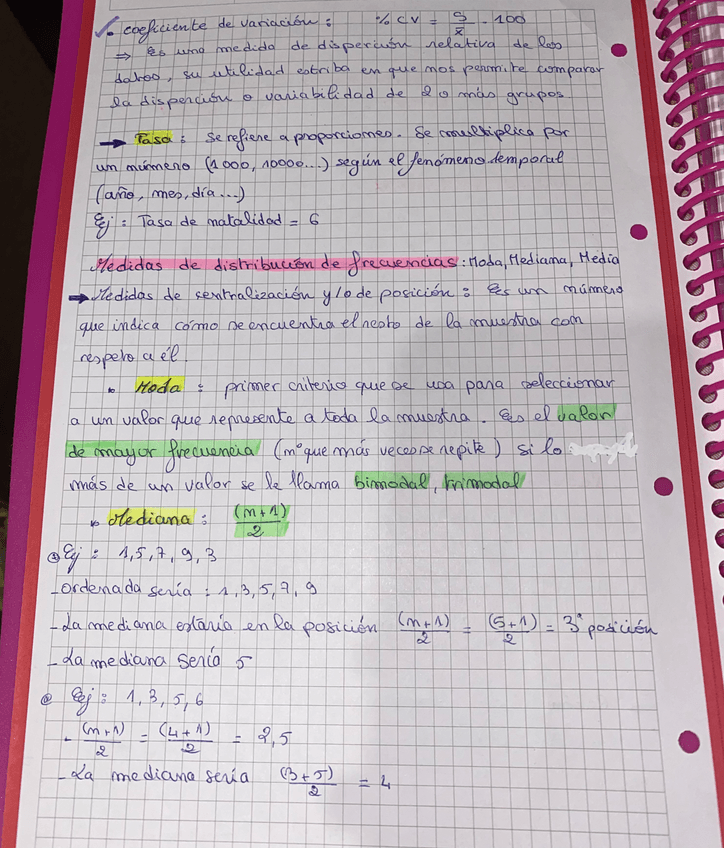 ✓• coeficiente de variación : % CV = S/x̄ · 100
⇒ Es una medida de disperción relativa de los
datos, su utilidad estriba en que nos permite comparar
la disperción o variabilidad de 2 o más grupos
→ Tasa : Se refiere a proporciones. Se multiplica por
un número (1000, 10000...) según el fenómeno temporal
(año, mes, día...)
Ej : Tasa de natalidad = 6
Medidas de distribución de frecuencias : Moda, Mediana, Media
→ Medidas de sentralización y/o de posición : Es un número
que indica cómo se encuentra el resto de la muestra con
respeto a él.
• Moda : primer criterio que se usa para seleccionar
a un valor que represente a toda la muestra. Es el valor
de mayor frecuencia (nº que más veces se repite) si lo
más de un valor se le llama bimodal, trimodal
• Mediana : (n+1)/2
Ej : 1, 5, 7, 9, 3
- ordenada sería : 1, 3, 5, 7, 9
- La mediana estaría en la posición (n+1)/2 = (5+1)/2 = 3ª posición
- La mediana sería 5
Ej : 1, 3, 5, 6
- (n+1)/2 = (4+1)/2 = 2,5
- La mediana sería (3+5)/2 = 4